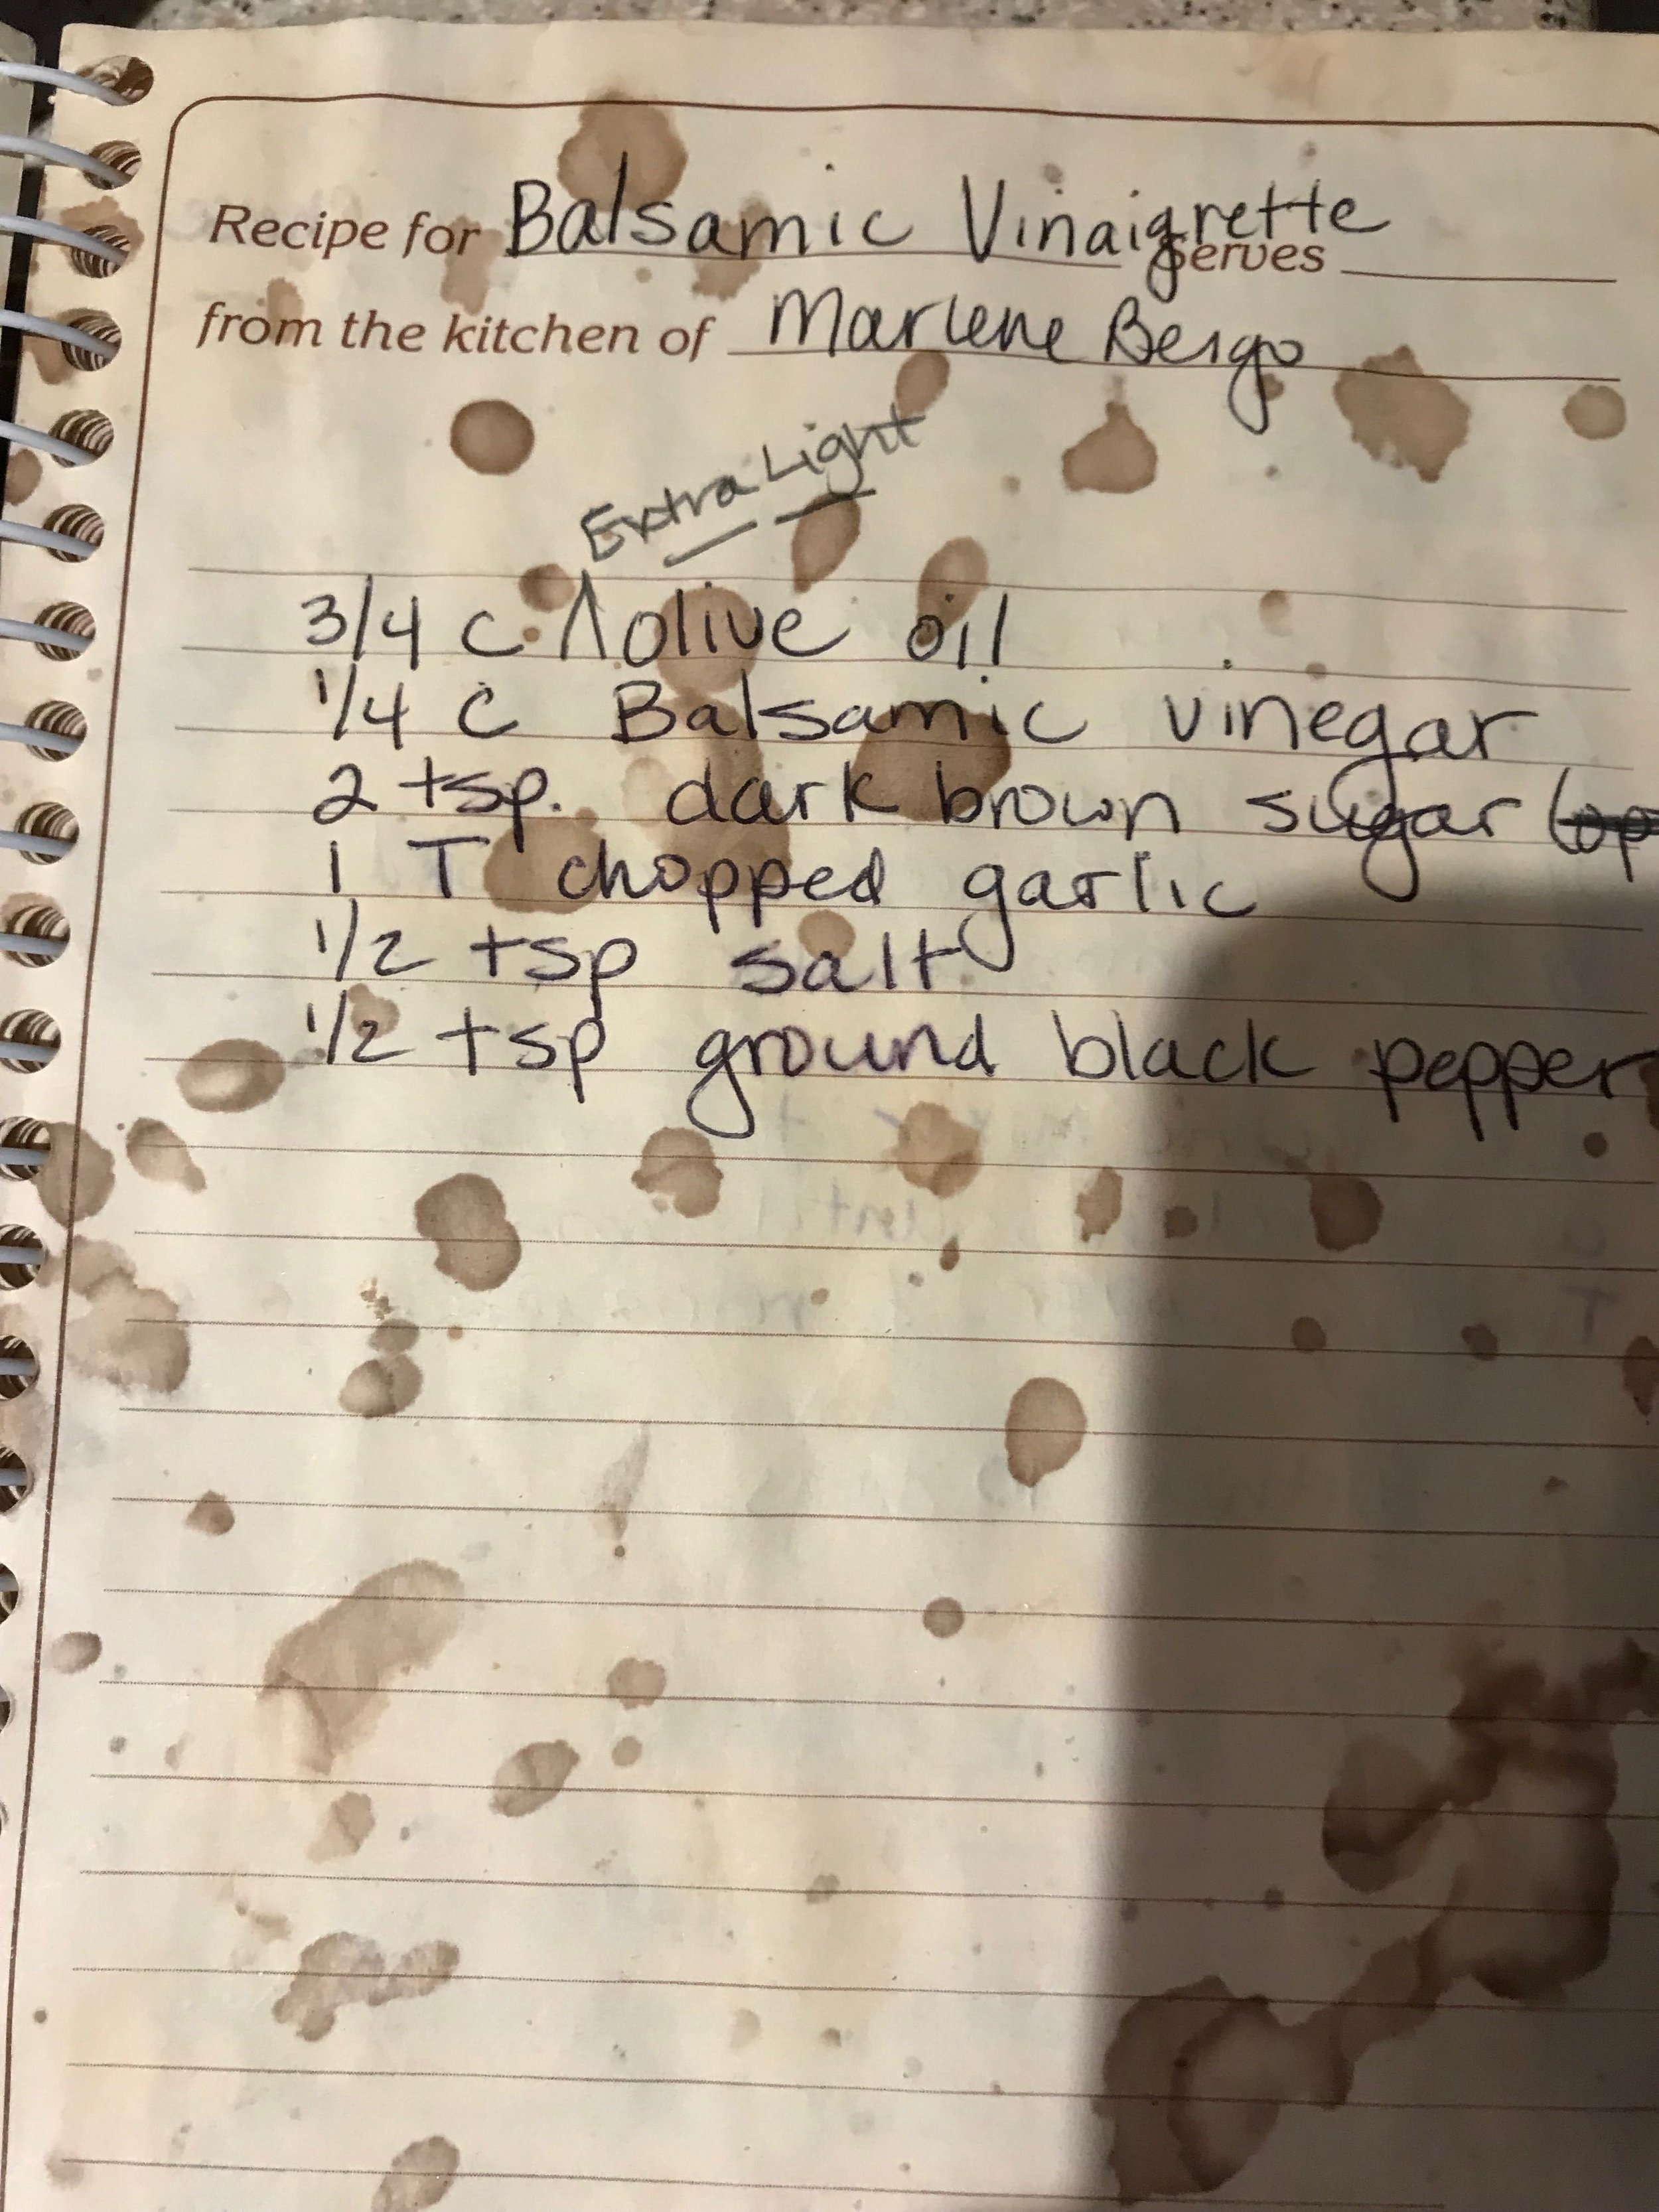 Recipe for Balsamic Vinaigrette serves
from the kitchen of Marlene Bergo
Extra Light
3/4 C ^ olive oil
1/4 C Balsamic vinegar
2 tsp. dark brown sugar
1 T chopped garlic
1/2 tsp salt
1/2 tsp ground black pepper